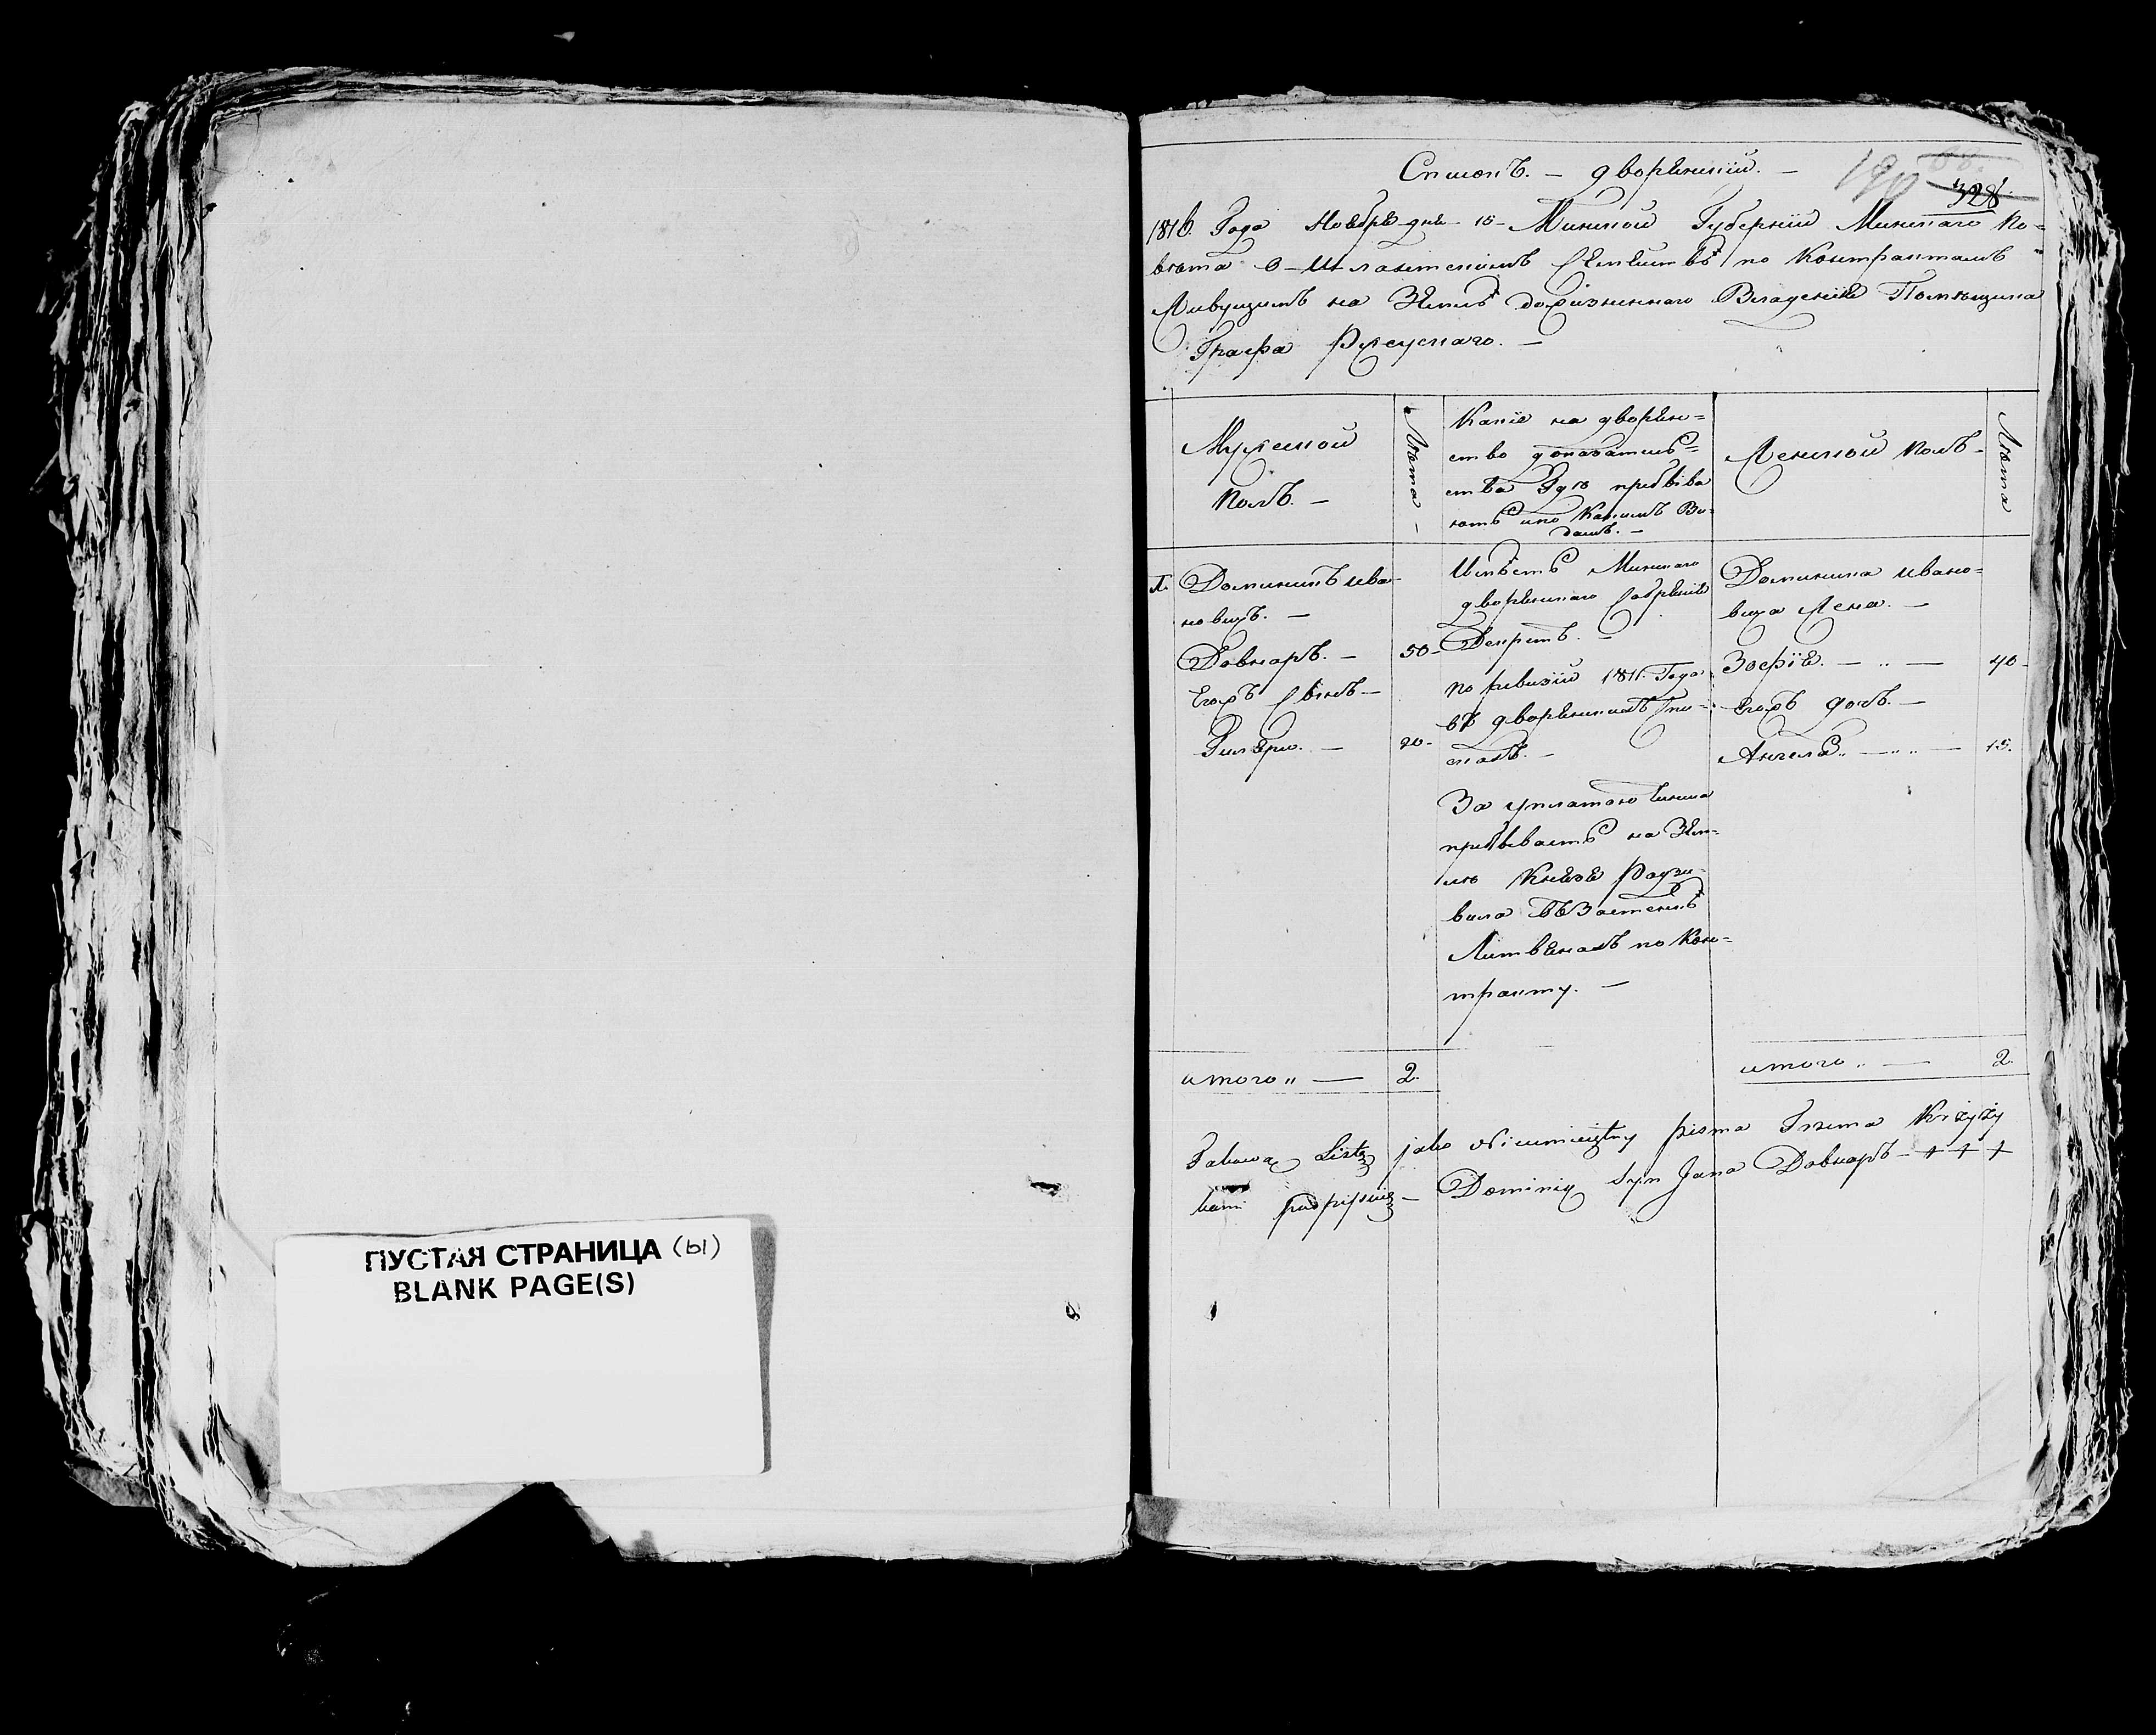 ПУСТАЯ СТРАНИЦА (ы)
BLANK PAGE(S)
Списокъ. — дворянскій. —
190
328
1816. Года Ноября дня 15 Минской Губерніи Минскаго По=
вѣта О Шляхетскомъ Семействѣ по Контрактамъ
Живущимъ на Землѣ дожизненнаго Владенія Помѣщика
Графа Ржеускаго. —
Мужеской
полъ. —
Лѣта —
Какіе на дворян=
ство доказатель=
ства Где пребыва
ютъ и по какимъ Ви=
дамъ. —
Женской полъ —
Лѣта
1. Доминикъ Ива=
новичъ. —
Довнаръ. — 50 —
Егожъ Сынъ —
Гиляри. — 20 —
Имѣетъ Минскаго
дворянскаго Собранія
Декретъ. —
по ревизіи 1811. Года
въ дворянскихъ
За уплатою чинша
пребываетъ на Зем=
лю Князя Радзи=
вила въ Застенкѣ
Литвянахъ по Кон=
тракту. —
Доминика Ивано=
вича Жена. —
Зофія. — „ — 40 —
Егожъ дочь. —
Ангеля „ — „ „ — 15.
итого „ — 2.
итого „ — 2
Takową Listę jako Nieumieiętny pisma Trzema Krzyży
kami podpisuię — Dominig Syn Jana Довнаръ — + + +